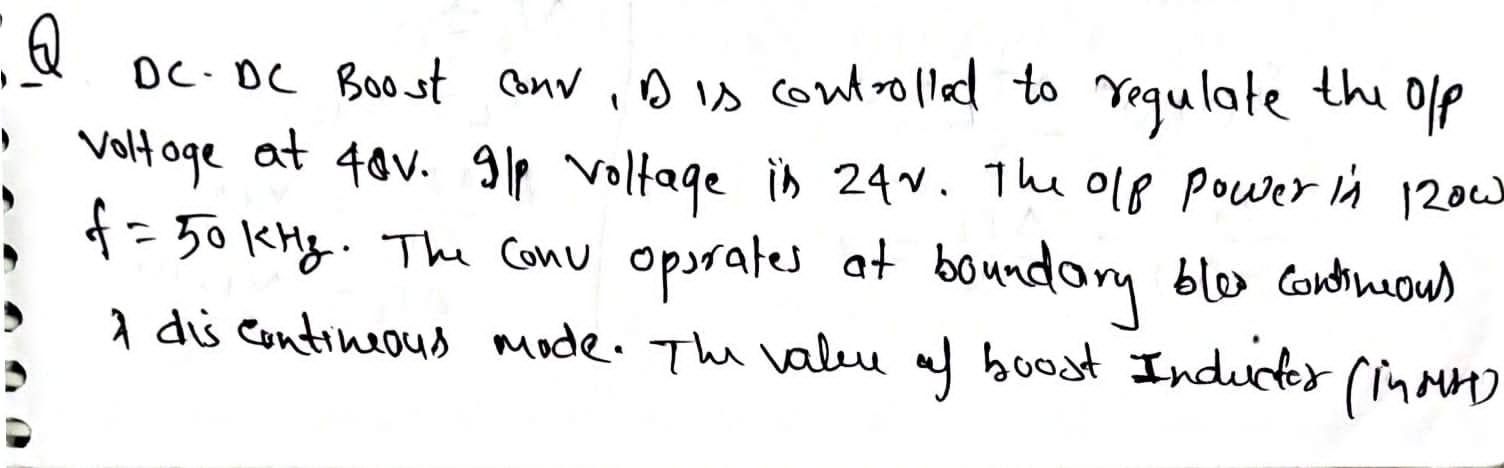 Q DC-DC Boost Conv, D is controlled to regulate the O/P
Voltage at 48V. I/P voltage is 24V. The O/P Power is 120W
f = 50 KHz. The Conv operates at boundary b/w Contineous
& dis Contineous mode. The value of boost Inductor (in MH)